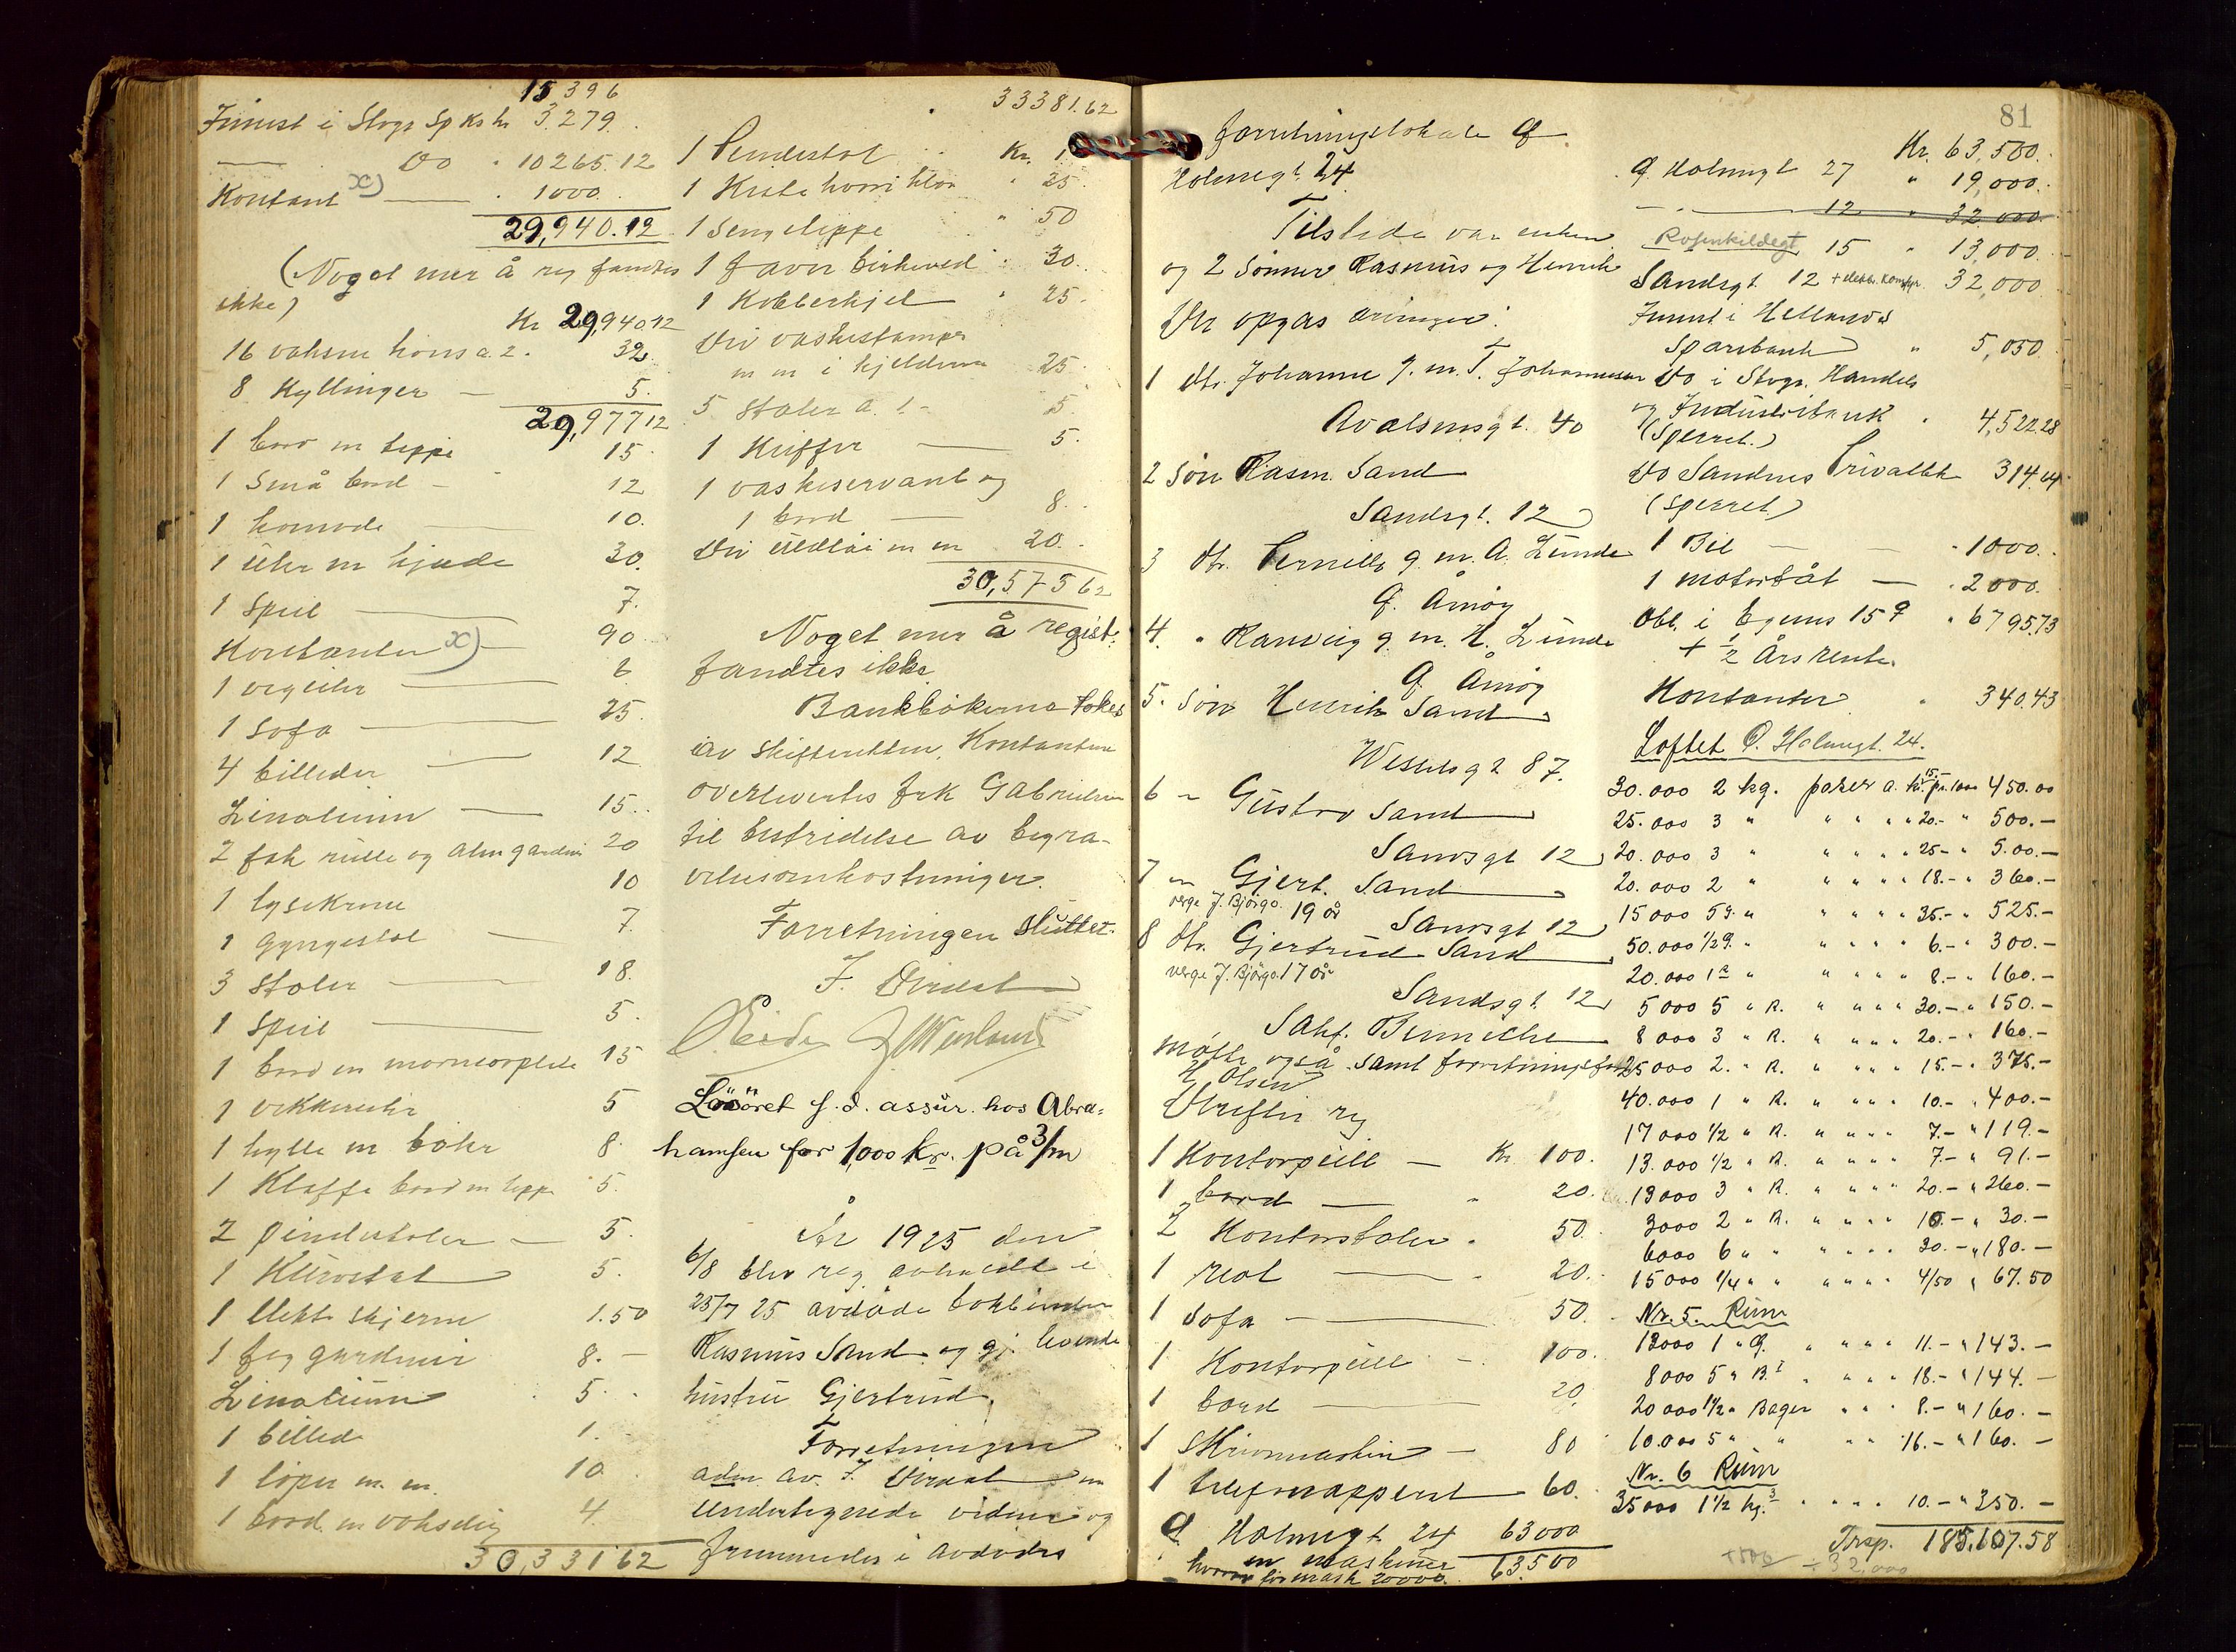 15396
Innest i Stvgr Spks kr 3.279.
— Do " 10265.12
Kontant x) — 1000.
29,940.12
(Noget mer å reg fandtes
ikke)
Kr 29,940 12
16 voksne høns a 2. 32.
8 Kyllinger — 5.
29,977 12
1 bord m teppe 15
1 Små bord - 12
1 komode — 10.
1 Uhr m kjæde 30.
1 Speil — 7.
Kontanter x) — 90
1 veguhr — 6
1 Sofa — 25.
4 billeder — 12
Linoleum — 15.
2 fak rulle og alm gardin 20
1 lysekrone 10
1 Gyngestol — 7.
3 Stoler — 18.
1 Speil — 5.
1 bord m marmorplate 15
1 vekkeruhr 5
1 hylle m bøker 8.
1 Klaffe bord m teppe 5.
2 pindestoler — 5.
1 Kurvstol 5.
1 elekt. skjerm 1.50
1 fag gardiner 8. —
Linoleum 5.
1 billede 1.
1 løper m. m. 10
1 bord m voksdug 4.
30,331 62
33381.62
1 Pindestol Kr. 1
1 Kiste hvori klær " 25
1 Sengeteppe " 50
1 favn birkeved " 30.
1 Kobberkjel " 25.
Div vaskestamper
m m i kjelderen 25
5 Stoler a. 1 - 5.
1 Kuffer — 5.
1 vaskeservant og
1 bord — 8.
Div Uldtøi m m 20.
30,575 62
Noget mer å regist.
fandtes ikke.
Bankbøkerne tokes
av skifteretten. Kontanten
overlevertes frk Gabrielsen
til bestridelse av begra-
velsesomkostninger.
Forretningen sluttet.
J. Dirdal
Løsöret f. d. assur. hos Abra=
hamsen for 1,000 kr. på 3/m
År 1925 den
6/8 blev reg avholdt i
25/7 25 avdøde bokbinder
Rasmus Sand og gj. levende
hustru Gjertrud.
Forretningen
adm. av J. Dirdal m
undertegnede vidner og
fremmedes i avdødes
81
forretningslokale Ø
Holmegt. 24
Tilstede var enken
og 2 sønner Rasmus og Henrik
Der opgas arvinger:
1 dtr. Johanne g. m. T. Johannesen
Avaldsnesgt. 40
2 Søn Rasm. Sand
Sandsgt. 12
3 dtr. Pernille g. m. A. Lunde
Ø. Åmøy
4. " Ranveig g. m. H. Lunde
Ø Åmøy
5. Søn Henrik Sand
Wesselsgt 87.
6 " Gustav Sand
Sandsgt 12
7 " Gjert. Sand
verge J. Bjørgo. 19 år Sandsgt 12
8 dtr. Gjertrud Sand
verge J. Bjørgo. 17 år
Sandsgt. 12
Sakf. Bennetter
møtte også. Samt forretningsf.
H Olsen
Derefter reg
1 Kontorpult — Kr. 100.
1 bord — " 20.
2 Kontorstoler " 50.
1 reol — " 20.
1 Sofa — 50.
1 Kontorpult — 100.
1 bord — 20.
1 Skrivmaskin — 80
1 telefonapperat 60.
Ø Holmegt. 24 63000
m maskiner
hvorav for mask 20000. 63.500
Kr. 63,500.
Ø Holmegt 27 " 19,000.
— " — 12 " 32 000.
Rosenkildegt 15 " 13,000.
Sandsgt. 12 + elektr. Komfyr. 32,000
Innest i Hetlands
Sparebank " 5,050
Do i Stvgr. Handels
og Industribank " 4,522 28
(Sperret.)
Do Sandnes Privatbk 314.64
(Sperret.)
1 Bil — " 1000.
1 motorbåt — " 2000.
Obl. i Egenes 15 9 " 6795,73
+ 1/2 Års rente.
Kontanter " 340.43
Loftet Ø. Holmegt. 24.
30.000 2 kg. poser a. kr. 15.- pr. 1000 450.00
25.000 3 " " " " " 20.- " 500.—
20.000 3 " " " " " 25.- " 500.—
20.000 2 " " " " " 18.- " 360.—
15000 5 g. " " " " " 35.- " 525.—
50.000 1/2 g. " " " " " 6.- " 300.—
20.000 1 a " " " " " 8.- " 160.—
5000 5 " R. " " " " 30.- " 150.—
8000 3 " R. " " " " 20.- " 160.—
25000 2. " R. " " " " 15.- " 375.—
40.000 1 " R. " " " " 10.- " 400.—
17000 1/2 " R. " " " " 7.- " 119.—
13.000 1/2 " R. " " " " 7.- " 91.—
13000 3 " R. " " " " 20.- " 260.—
3000 2 " R. " " " " 10.- " 30.—
6000 6 " " " " " " 30.- " 180.—
15000 1/4 " " " " " " 4/50 " 67.50
Nr. 5. Rum
13000 1 " Ø. " " " " 11.- " 143.—
8000 5 " B.I " " " " 18.- " 144.—
20000 1 1/2 " Bager " " " 8.- " 160.—
10.000 5 " " " " " 16.- " 160.—
Nr. 6 Rum
35000 1 1/2 kg. " " " " 10.- " 350.—
Trsp. 185.107.58
÷ 32,000